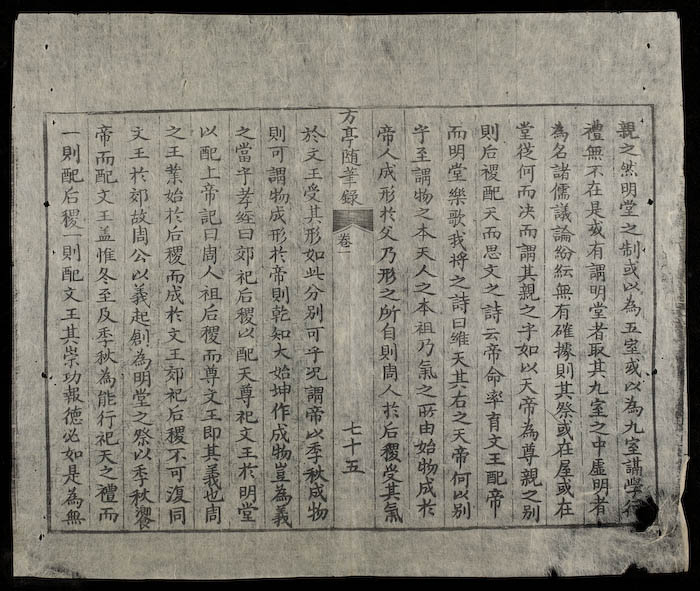 親之然明堂之制或以為五室或以為九室講學行
禮無不在是或有謂明堂者取其九室之中虛明者
為名諸儒議論紛紜無有確據則其祭或在屋或在
堂從何而决而謂其親之字如以天帝為尊親之别
則后稷配天而思文之詩云帝命率育文王配帝
而明堂樂歌我将之詩曰維天其右之天帝何以别
乎至謂物之本天人之本祖乃氣之所由始物成於
帝人成形於父乃形之所自則周人於后稷受其氣
方亭随筆録
卷一
七十五
於文王受其形如此分别可乎况謂帝以季秋成物
則可謂物成形於帝則乾知大始坤作成物豈為義
之當乎孝經曰郊祀后稷以配天尊祀文王於明堂
以配上帝記曰周人祖后稷而尊文王即其義也周
之王業始於后稷而成於文王郊祀后稷不可復同
文王於郊故周公以義起創為明堂之祭以季秋饗
帝而配文王盖惟冬至及季秋為能行祀天之禮而
一則配后稷一則配文王其崇功報德必如是為無